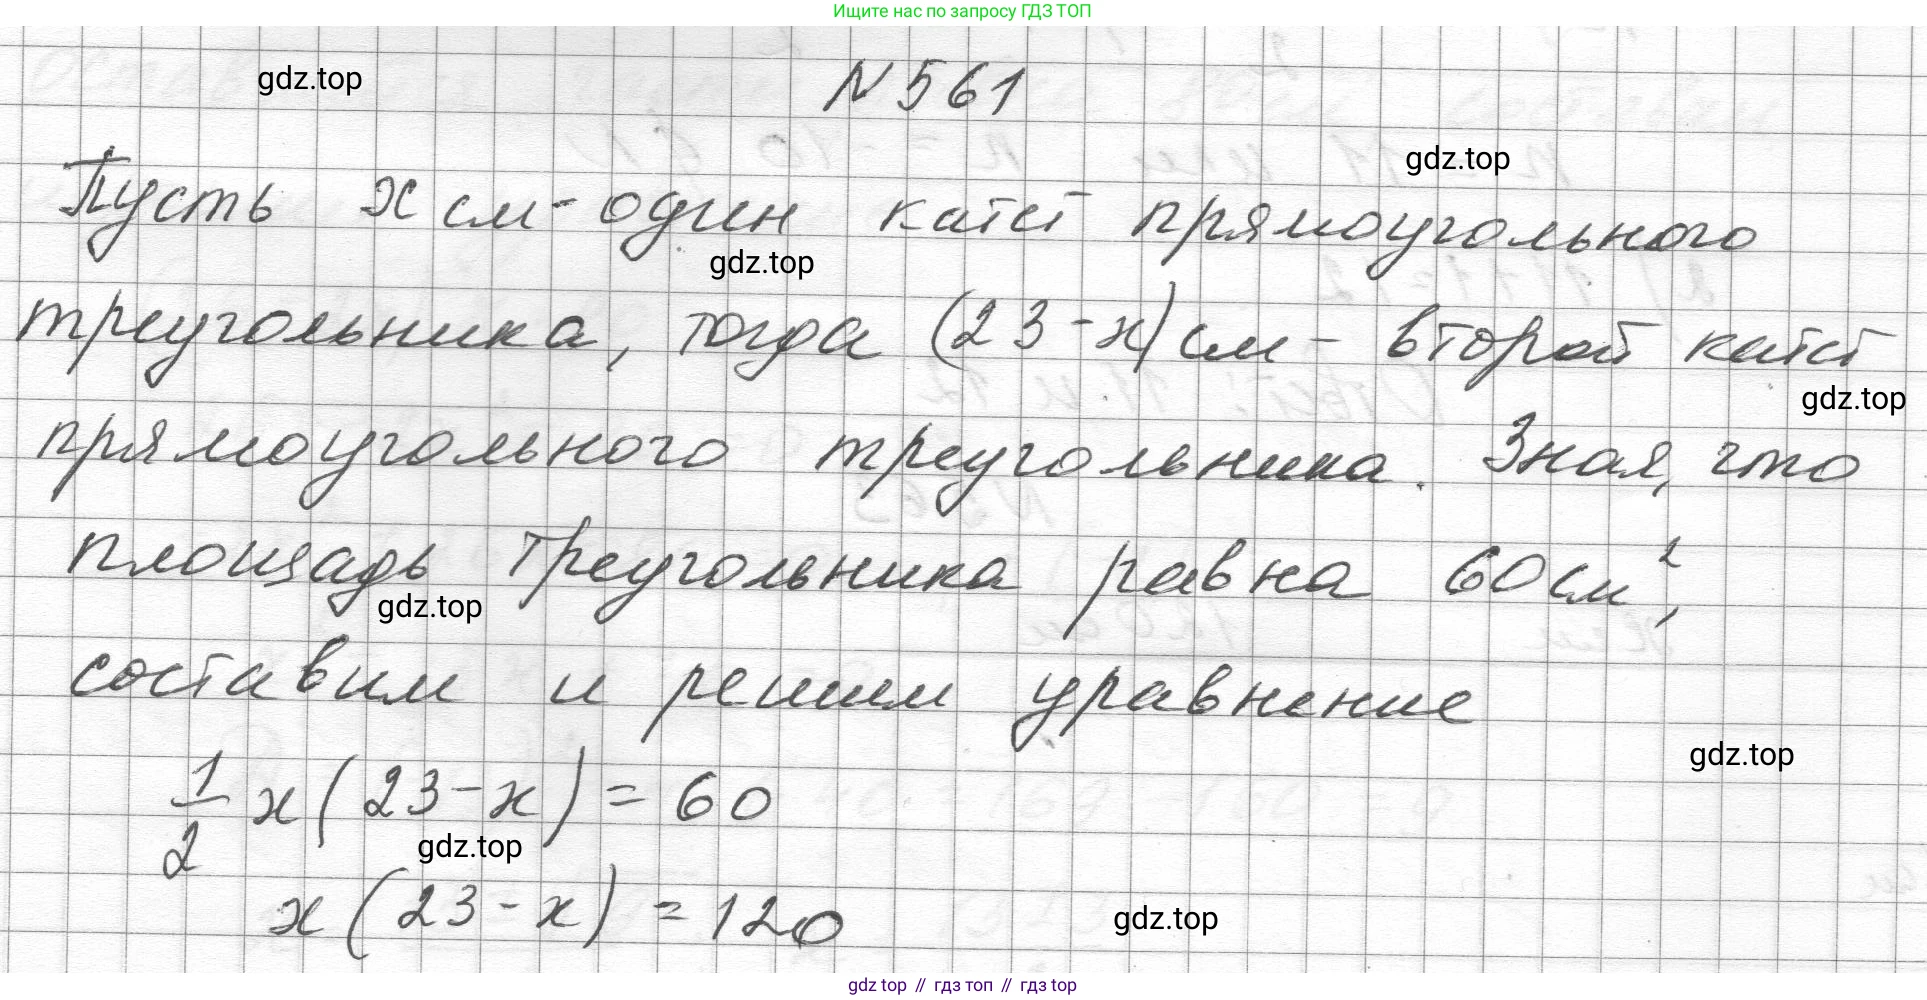 Ищите нас по запросу ГДЗ ТОП
gdz.top
N 561
gdz.top
Пусть x см - один катет прямоугольного
gdz.top
треугольника, тогда (23 - x) см - второй катет
gdz.top
прямоугольного треугольника. Зная, что
площадь треугольника равна 60 см²,
gdz.top
составим и решим уравнение
gdz.top
1/2 x (23 - x) = 60
gdz.top
x (23 - x) = 120
gdz.top
gdz top // гдз топ // gdz top